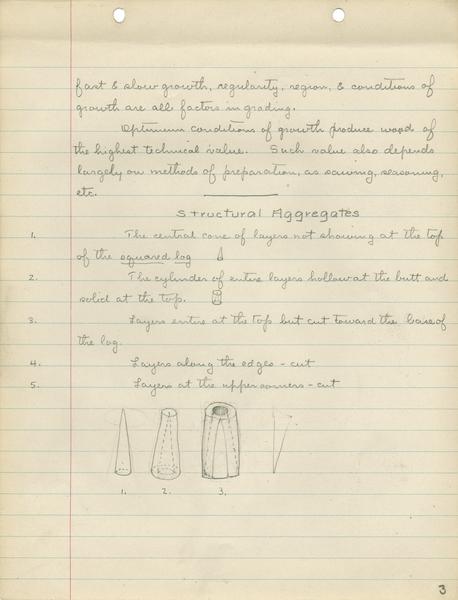 fast & slow growth, regularity, region, & conditions of
growth are all factors in grading.
Optimum conditions of growth produce wood of
the highest technical value. Such value also depends
largely on methods of preparation, as sawing, seasoning,
etc.
Structural Aggregates
1. The central cone of layers not showing at the top
of the squared log
2. The cylinder of entire layers hollow at the butt and
solid at the top.
3. Layers entire at the top but cut toward the base of
the log.
4. Layers along the edges - cut
5. Layers at the upper corners - cut
1. 2. 3.
3